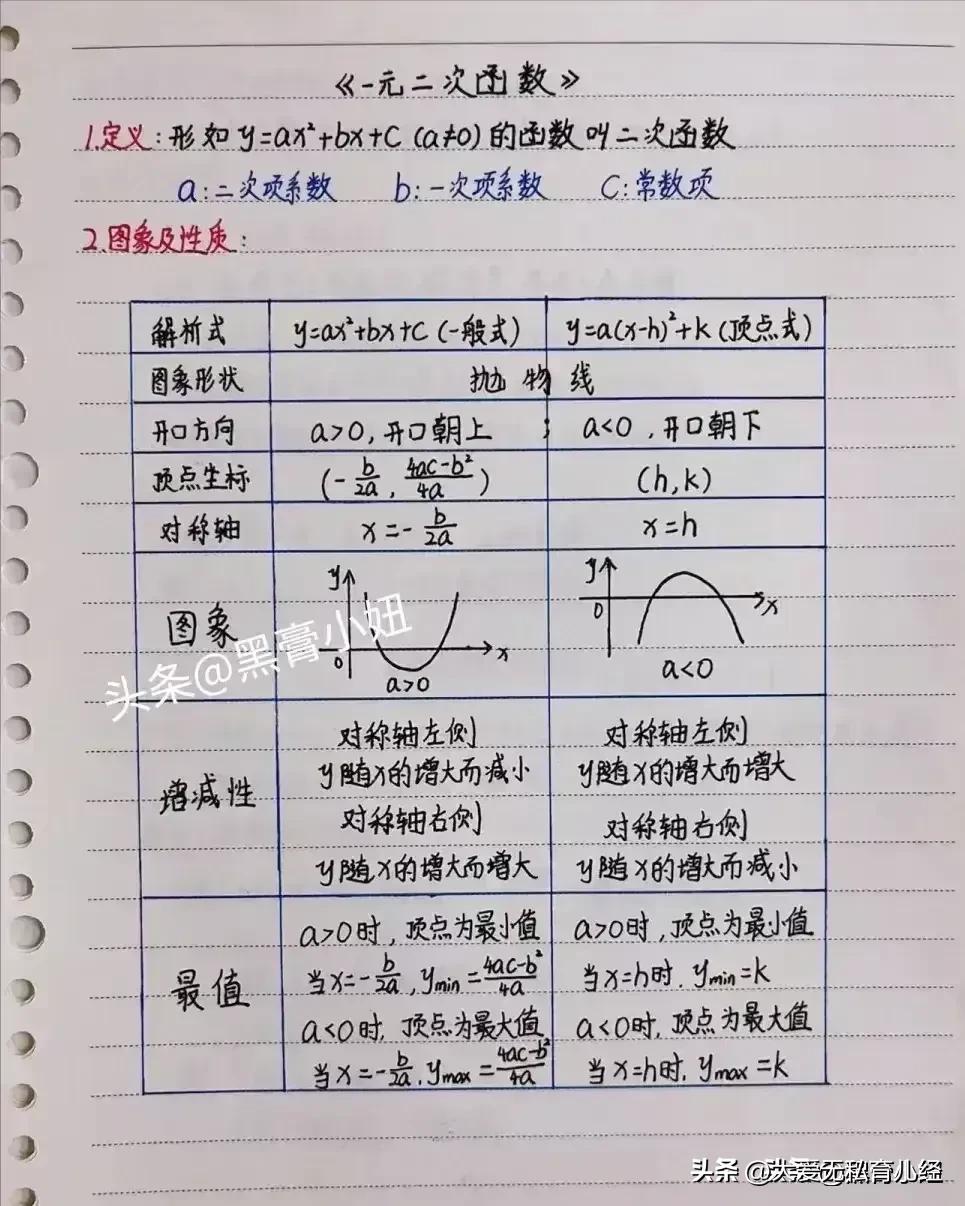 《一元二次函数》
1.定义：形如 y=ax²+bx+C (a≠0) 的函数叫二次函数
a:二次项系数 b:一次项系数 C:常数项
2.图象及性质：
解析式 y=ax²+bx+C (一般式) y=a(x-h)²+k (顶点式)
图象形状 抛物线
开口方向 a>0,开口朝上 ; a<0,开口朝下
顶点坐标 (-b/2a, 4ac-b²/4a) (h,k)
对称轴 x=-b/2a x=h
图象
y
0
x
a>0
y
0
x
a<0
增减性
对称轴左侧
y随x的增大而减小
对称轴右侧
y随x的增大而增大
对称轴左侧
y随x的增大而增大
对称轴右侧
y随x的增大而减小
最值
a>0时,顶点为最小值
当x=-b/2a, ymin=4ac-b²/4a
a<0时,顶点为最大值
当x=-b/2a, ymax=4ac-b²/4a
a>0时,顶点为最小值
当x=h时. ymin=k
a<0时,顶点为最大值
当x=h时. ymax=k
头条@黑膏小妞
头条